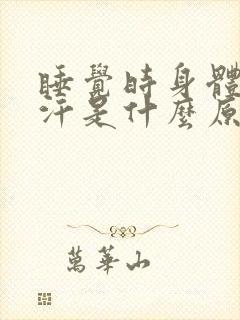 睡覺時身體
汗是什麼原
萬華山